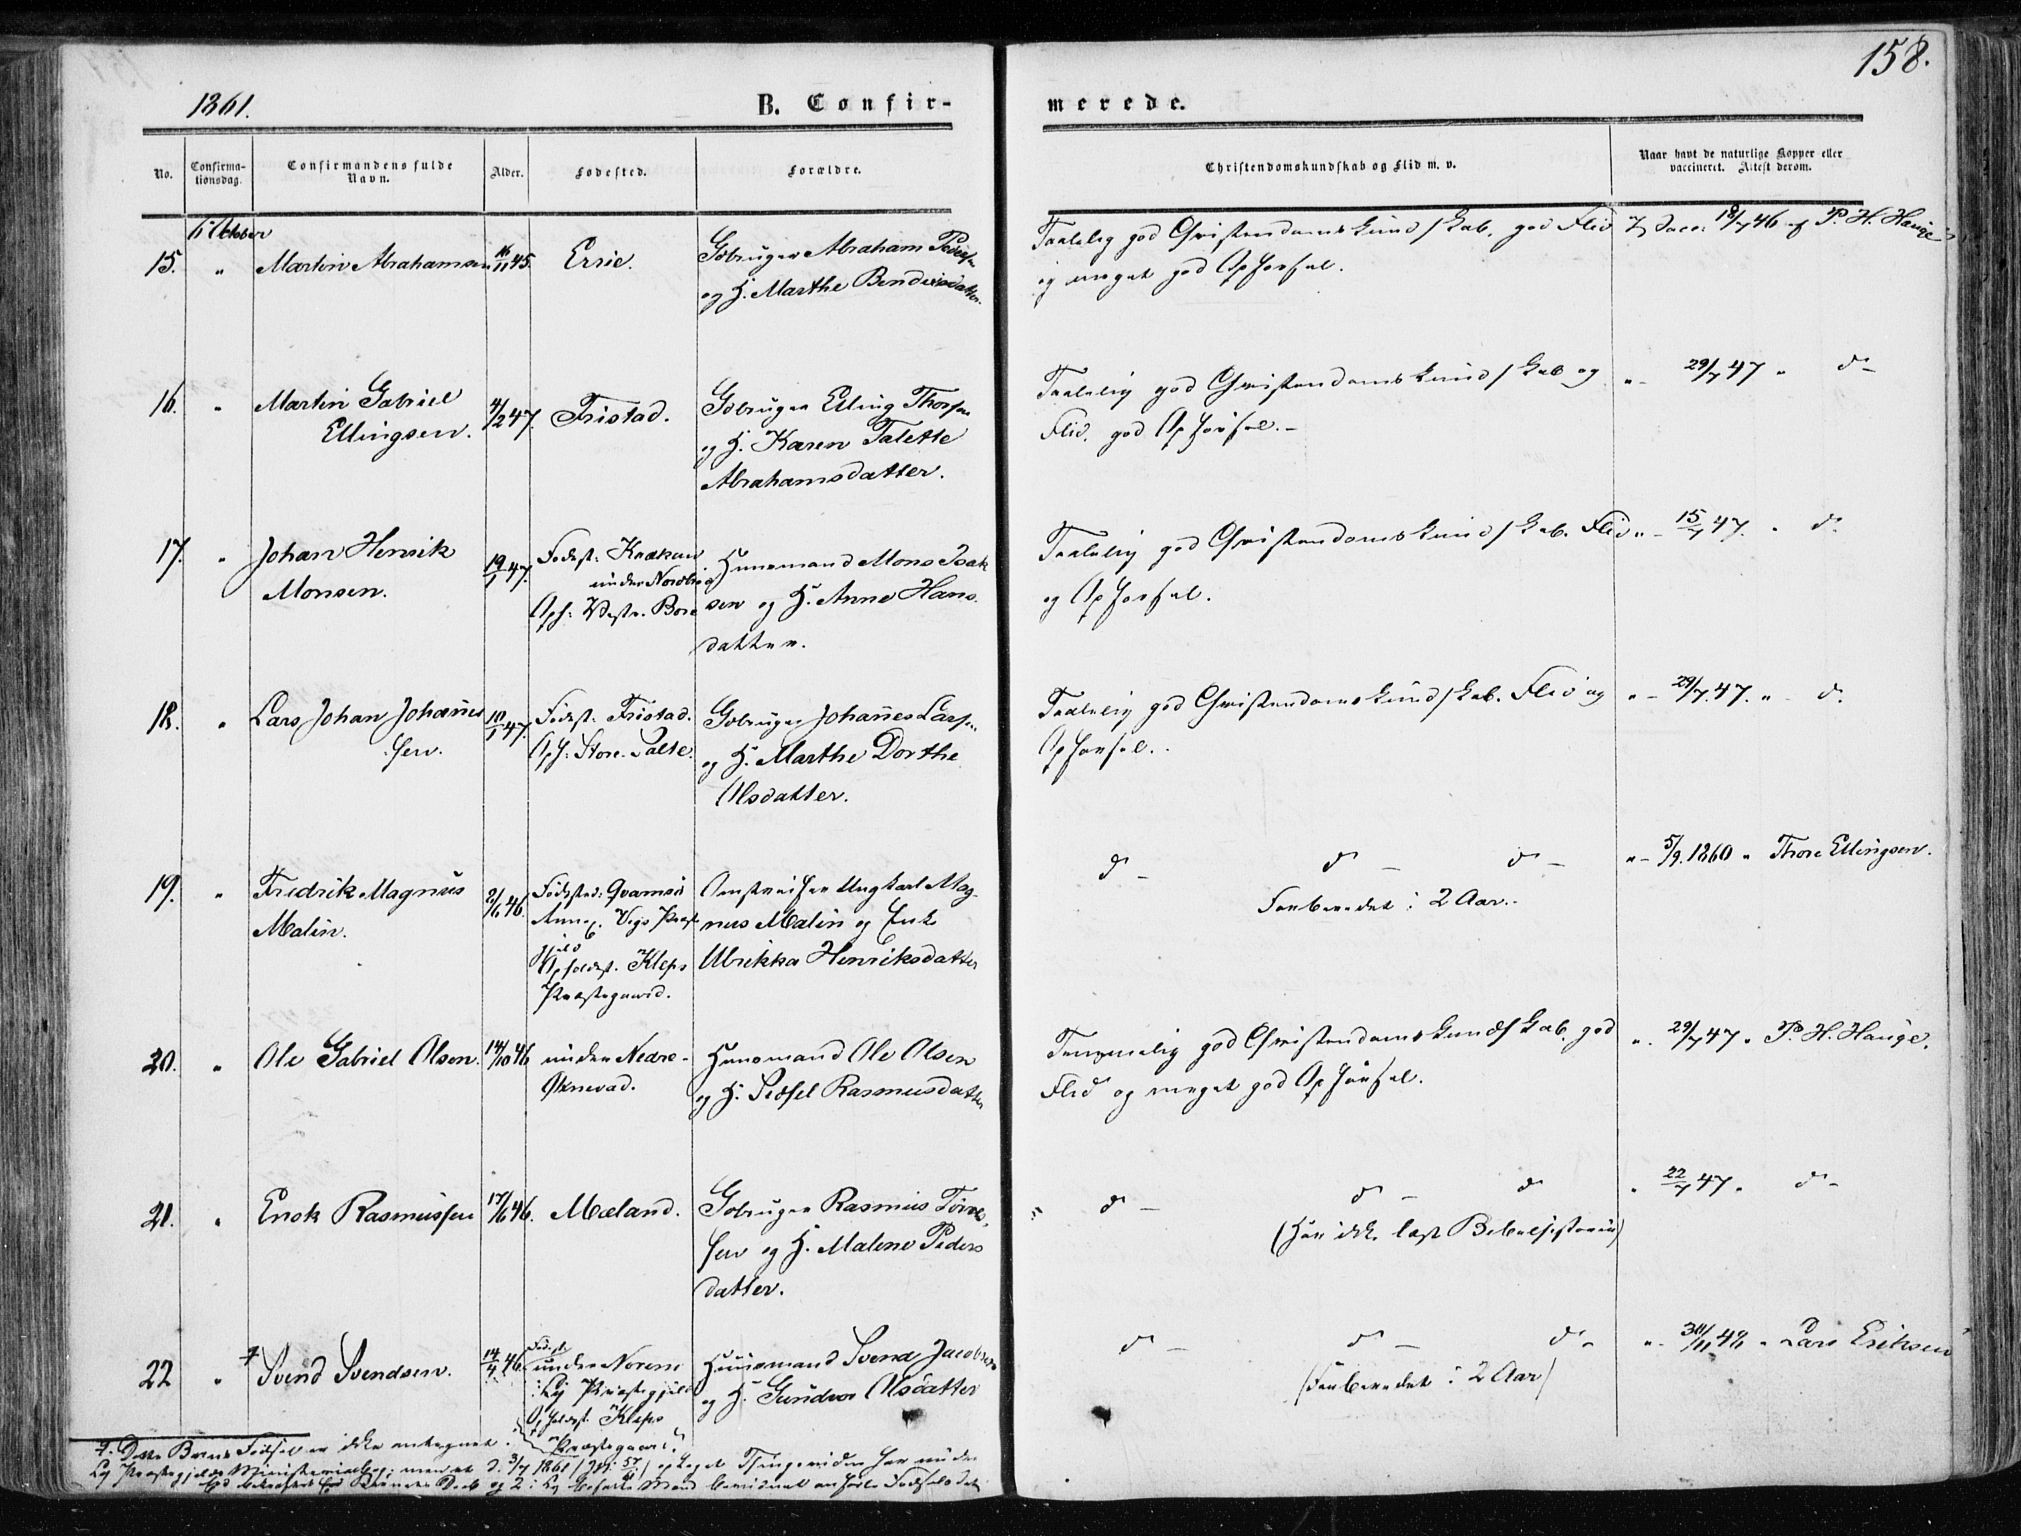 158.
1861.
B. Confir-
merede.
No.
Confirma-
tionsdag.
Confirmandens fulde
Navn.
Alder.
Fødested.
Forældre.
Christendomskundskab og Flid m. v.
Naar havt de naturlige Kopper eller
vaccineret. Attest derom.
6 October
15. " Martin Abrahamsen 16/11 45. Ersie. Gbruger Abraham Peders
og H. Marthe Bendixsdatter.
Taalelig god Christendomskundskab, god Flid
og meget god Opførsel.
18/7 46 af P. H. Hauge
16. " Martin Gabriel
Ellingsen.
4/2 47. Fristad.
Gbruger Elling Thorsen
og H. Karen Talette
Abrahamsdatter.
Taalelig god Christendomskundskab og
Flid, god Opførsel. -
" - 29/7 47 " d -
17. " Johan Henrik
Monsen.
19/1 47.
Fødest: Kraken
under Nordbrig
Oph: Vestr. Bore
Huusmand Mons Isak
sen og H. Anne Hans
datter.
Taalelig god Christendomskundskab. Flid
og Opførsel.
" - 15/7 47. " d.
18. " Lars Johan Johañes
sen.
10/1 47.
Fødest: Fristad.
Oph: Store-Salte.
Gbruger Johañes Lars.
og H. Marthe Dorthe
Olsdatter.
Taalelig god Christendomskundskab. Flid og
Opførsel.
" - 29/7. 47. " - d.
19. " Fredrik Magnus
Malin.
2/6 46.
Fødested: Qvamsö
Annex. Vigs Præst
gjeld
Opholdst. Kleps
Præstegaard.
Ungkarl Mag-
nus Malin og Enke
Ulrikka Henriksdatter
d - d - d -
Forberedet i 2 Aar.
" - 5/9. 1860 " Thore Ellingsen.
20. " Ole Gabriel Olsen. 14/10 46
under Nedre-
Øxnevad.
Huusmand Ole Olsen
og H. Sidsel Rasmusdatter
Temmelig god Christendomskundskab, god
Flid og meget god Opførsel.
" . 29/7 47 " P. H. Hauge.
21. " Enok Rasmussen 17/6 46. Mæland.
Gbruger Rasmus Törres
sen og H. Malene Peders
datter.
d - d - d
(Har ikke læst Bibelhistorie)
" 22/7 47 " d -
22 " Svend Svendsen. 14/4 46.
Fødest.
under Norem
i Ly Præstegjeld
Opholdst. Kleps
Præstegaard.
Huusmand Svend Jacobsen
og H. Gundvor Olsdatter
d - d - d -
(Forberedet i 2 Aar)
" - 30/11 48 " Lars Eriksen
Dette Barns Fødsel er ikke antegnet i
Ly Præstegjelds Ministerialbog; men et d. 3/7 1861 optaget Thingsvidne har under